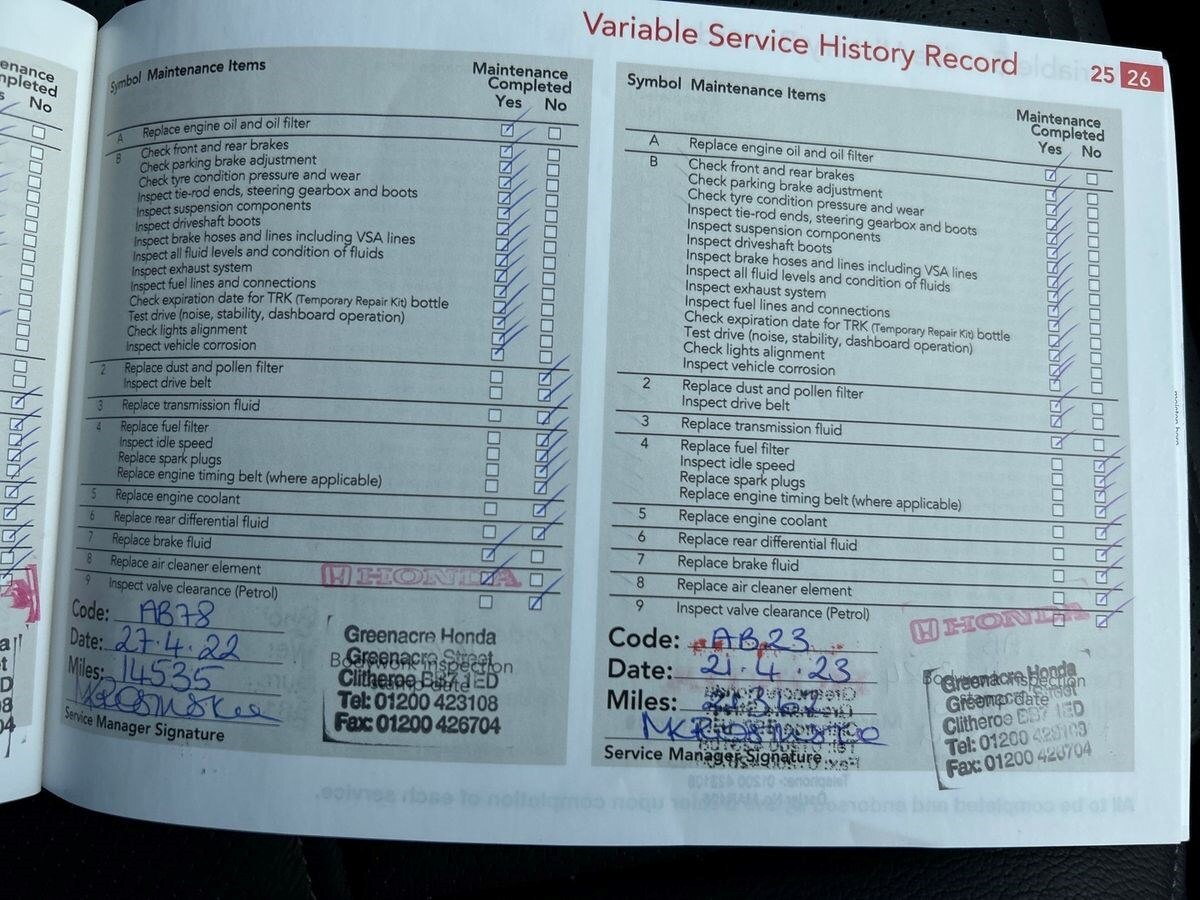 Variable Service History Record
25 26
enance
mpleted
s No
Symbol Maintenance Items
Maintenance
Completed
Yes No
A Replace engine oil and oil filter
B Check front and rear brakes
Check parking brake adjustment
Check tyre condition pressure and wear
Inspect tie-rod ends, steering gearbox and boots
Inspect suspension components
Inspect driveshaft boots
Inspect brake hoses and lines including VSA lines
Inspect all fluid levels and condition of fluids
Inspect exhaust system
Inspect fuel lines and connections
Check expiration date for TRK (Temporary Repair Kit) bottle
Test drive (noise, stability, dashboard operation)
Check lights alignment
Inspect vehicle corrosion
2 Replace dust and pollen filter
Inspect drive belt
3 Replace transmission fluid
4 Replace fuel filter
Inspect idle speed
Replace spark plugs
Replace engine timing belt (where applicable)
5 Replace engine coolant
6 Replace rear differential fluid
7 Replace brake fluid
8 Replace air cleaner element
9 Inspect valve clearance (Petrol)
HONDA
Code: AB78
Date: 27.4.22
Miles: 14535
Service Manager Signature
Greenacre Honda
Greenacre Street
Bodywork inspection
Clitheroe BB7 1ED
stamp date
Tel: 01200 423108
Fax: 01200 426704
Symbol Maintenance Items
Maintenance
Completed
Yes No
A Replace engine oil and oil filter
B Check front and rear brakes
Check parking brake adjustment
Check tyre condition pressure and wear
Inspect tie-rod ends, steering gearbox and boots
Inspect suspension components
Inspect driveshaft boots
Inspect brake hoses and lines including VSA lines
Inspect all fluid levels and condition of fluids
Inspect exhaust system
Inspect fuel lines and connections
Check expiration date for TRK (Temporary Repair Kit) bottle
Test drive (noise, stability, dashboard operation)
Check lights alignment
Inspect vehicle corrosion
2 Replace dust and pollen filter
Inspect drive belt
3 Replace transmission fluid
4 Replace fuel filter
Inspect idle speed
Replace spark plugs
Replace engine timing belt (where applicable)
5 Replace engine coolant
6 Replace rear differential fluid
7 Replace brake fluid
8 Replace air cleaner element
9 Inspect valve clearance (Petrol)
HONDA
Code: AB23
Date: 21.4.23
Miles:
Service Manager Signature
Greenacre Honda
Bodywork inspection
Street
date
Clitheroe BB7 1ED
Tel: 01200 423108
Fax: 01200 426704